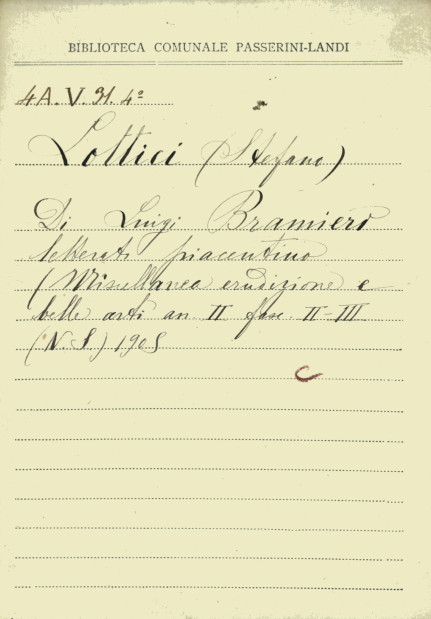 BIBLIOTECA COMUNALE PASSERINI-LANDI
4A.V.31.4º
Lottici (Stefano)
Di Luigi Bramieri
letterato piacentino
(Miscellanea erudizione e
belle arti an. II fasc. II-III
(N.S.) 1905